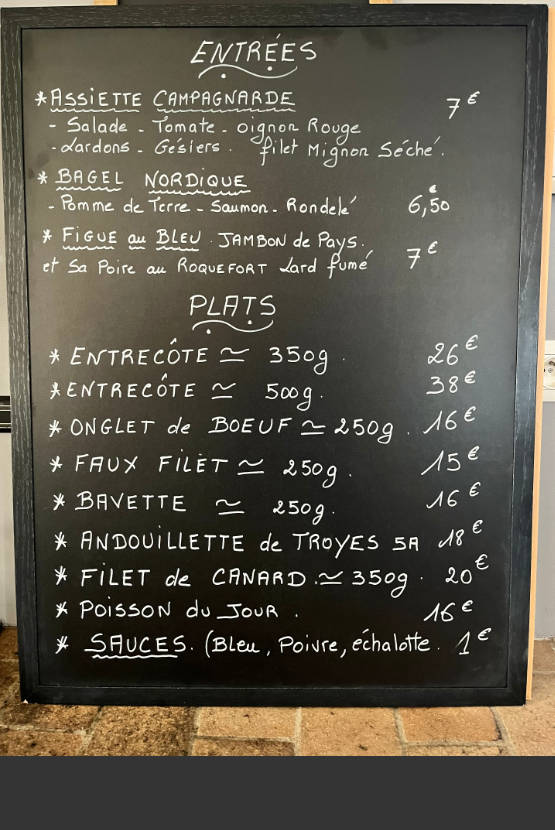 ENTRÉES
* ASSiETTE CAMPAGNARDE 7€
- Salade - Tomate - oignon Rouge
- Lardons - Gésiers . filet Mignon Séché .
* BAGEL NORDiQUE
- Pomme de Terre - Saumon - Rondelé 6,50€
* FiGUE au BLEU . JAMBON de Pays .
et Sa Poire au ROQUEFORT Lard fumé 7€
PLATS
* ENTRECÔTE ≃ 350g . 26€
* ENTRECÔTE ≃ 500g . 38€
* ONGLET de BOEUF ≃ 250g . 16€
* FAUX FiLET ≃ 250g . 15€
* BAVETTE ≃ 250g . 16€
* ANDOUiLLETTE de TROYES 5A 18€
* FiLET de CANARD . ≃ 350g . 20€
* POiSSON du JOUR . 16€
* SAUCES . (Bleu , Poivre, échalotte . 1€